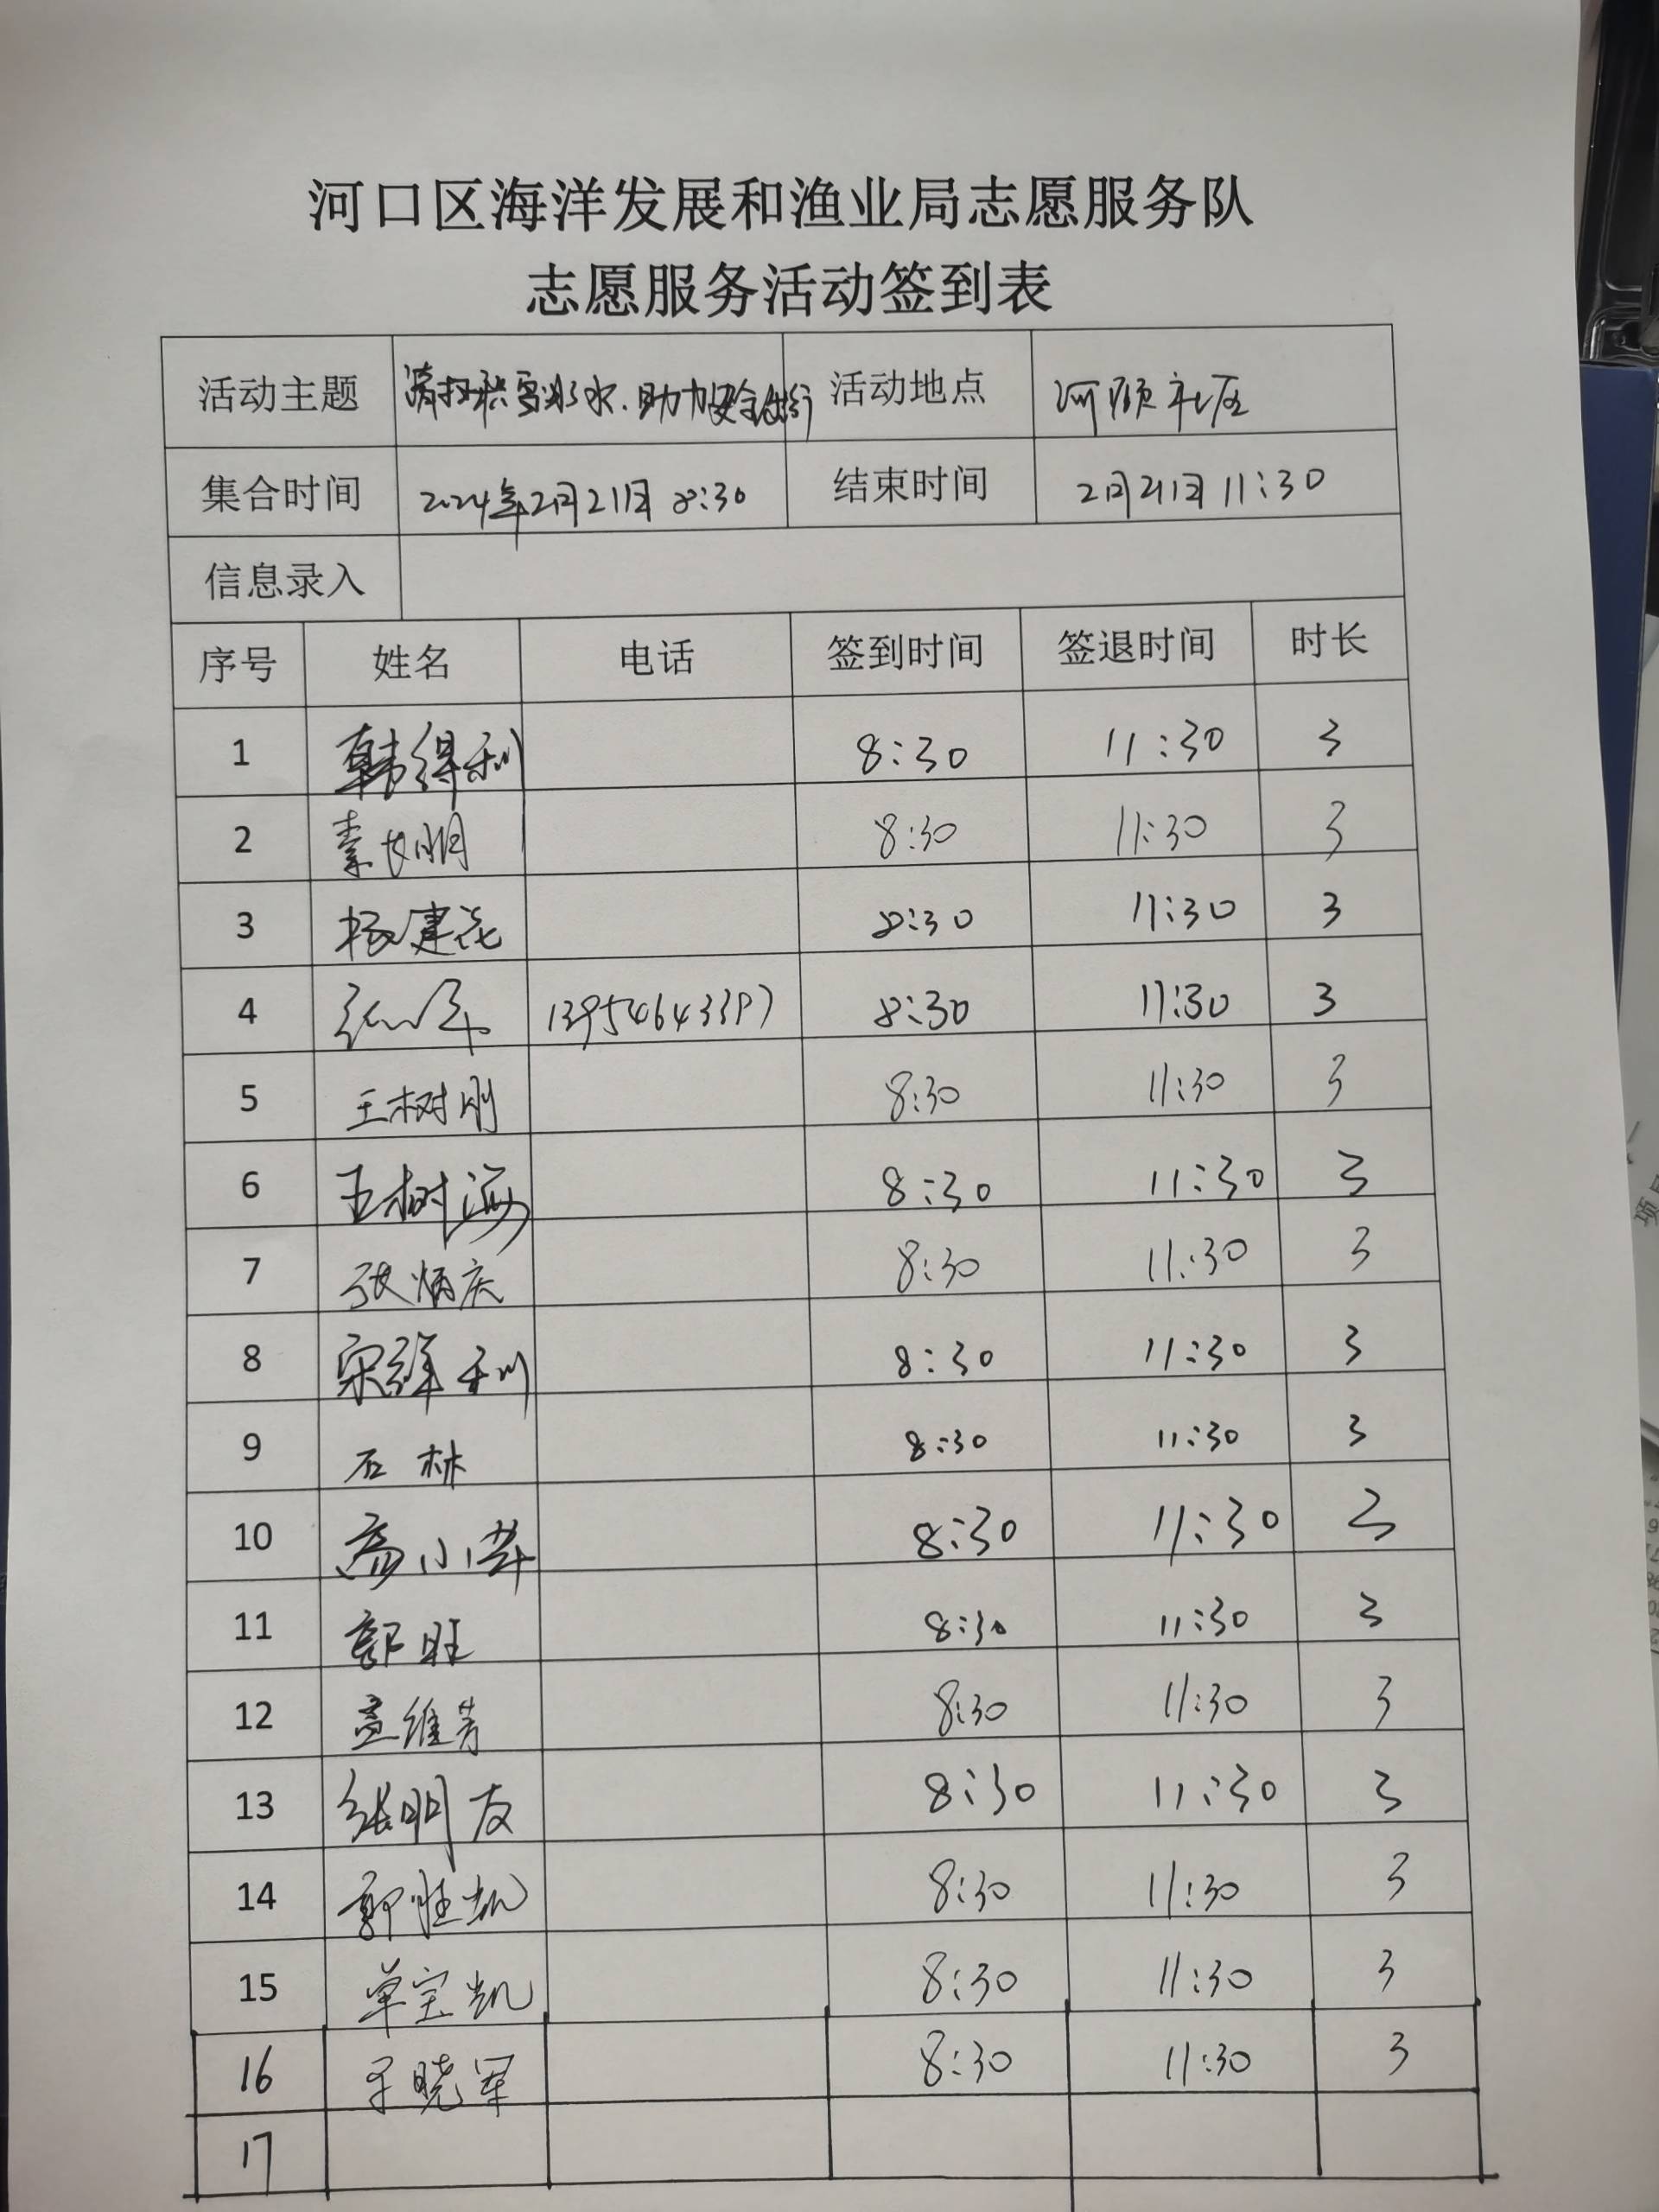 河口区海洋发展和渔业局志愿服务队
志愿服务活动签到表
活动主题 清扫积雪冰水、助力安全出行 活动地点 河颐社区
集合时间 2024年2月21日 8:30 结束时间 2月21日 11:30
信息录入
序号 姓名 电话 签到时间 签退时间 时长
1 韩得利 8:30 11:30 3
2 8:30 11:30 3
3 杨建花 8:30 11:30 3
4 13954643397 8:30 11:30 3
5 王树刚 8:30 11:30 3
6 王树海 8:30 11:30 3
7 张炳庆 8:30 11:30 3
8 宋祥利 8:30 11:30 3
9 石林 8:30 11:30 3
10 高小苹 8:30 11:30 3
11 郭旺 8:30 11:30 3
12 孟维芳 8:30 11:30 3
13 张明友 8:30 11:30 3
14 郭胜凯 8:30 11:30 3
15 单宝凯 8:30 11:30 3
16 于晓军 8:30 11:30 3
17